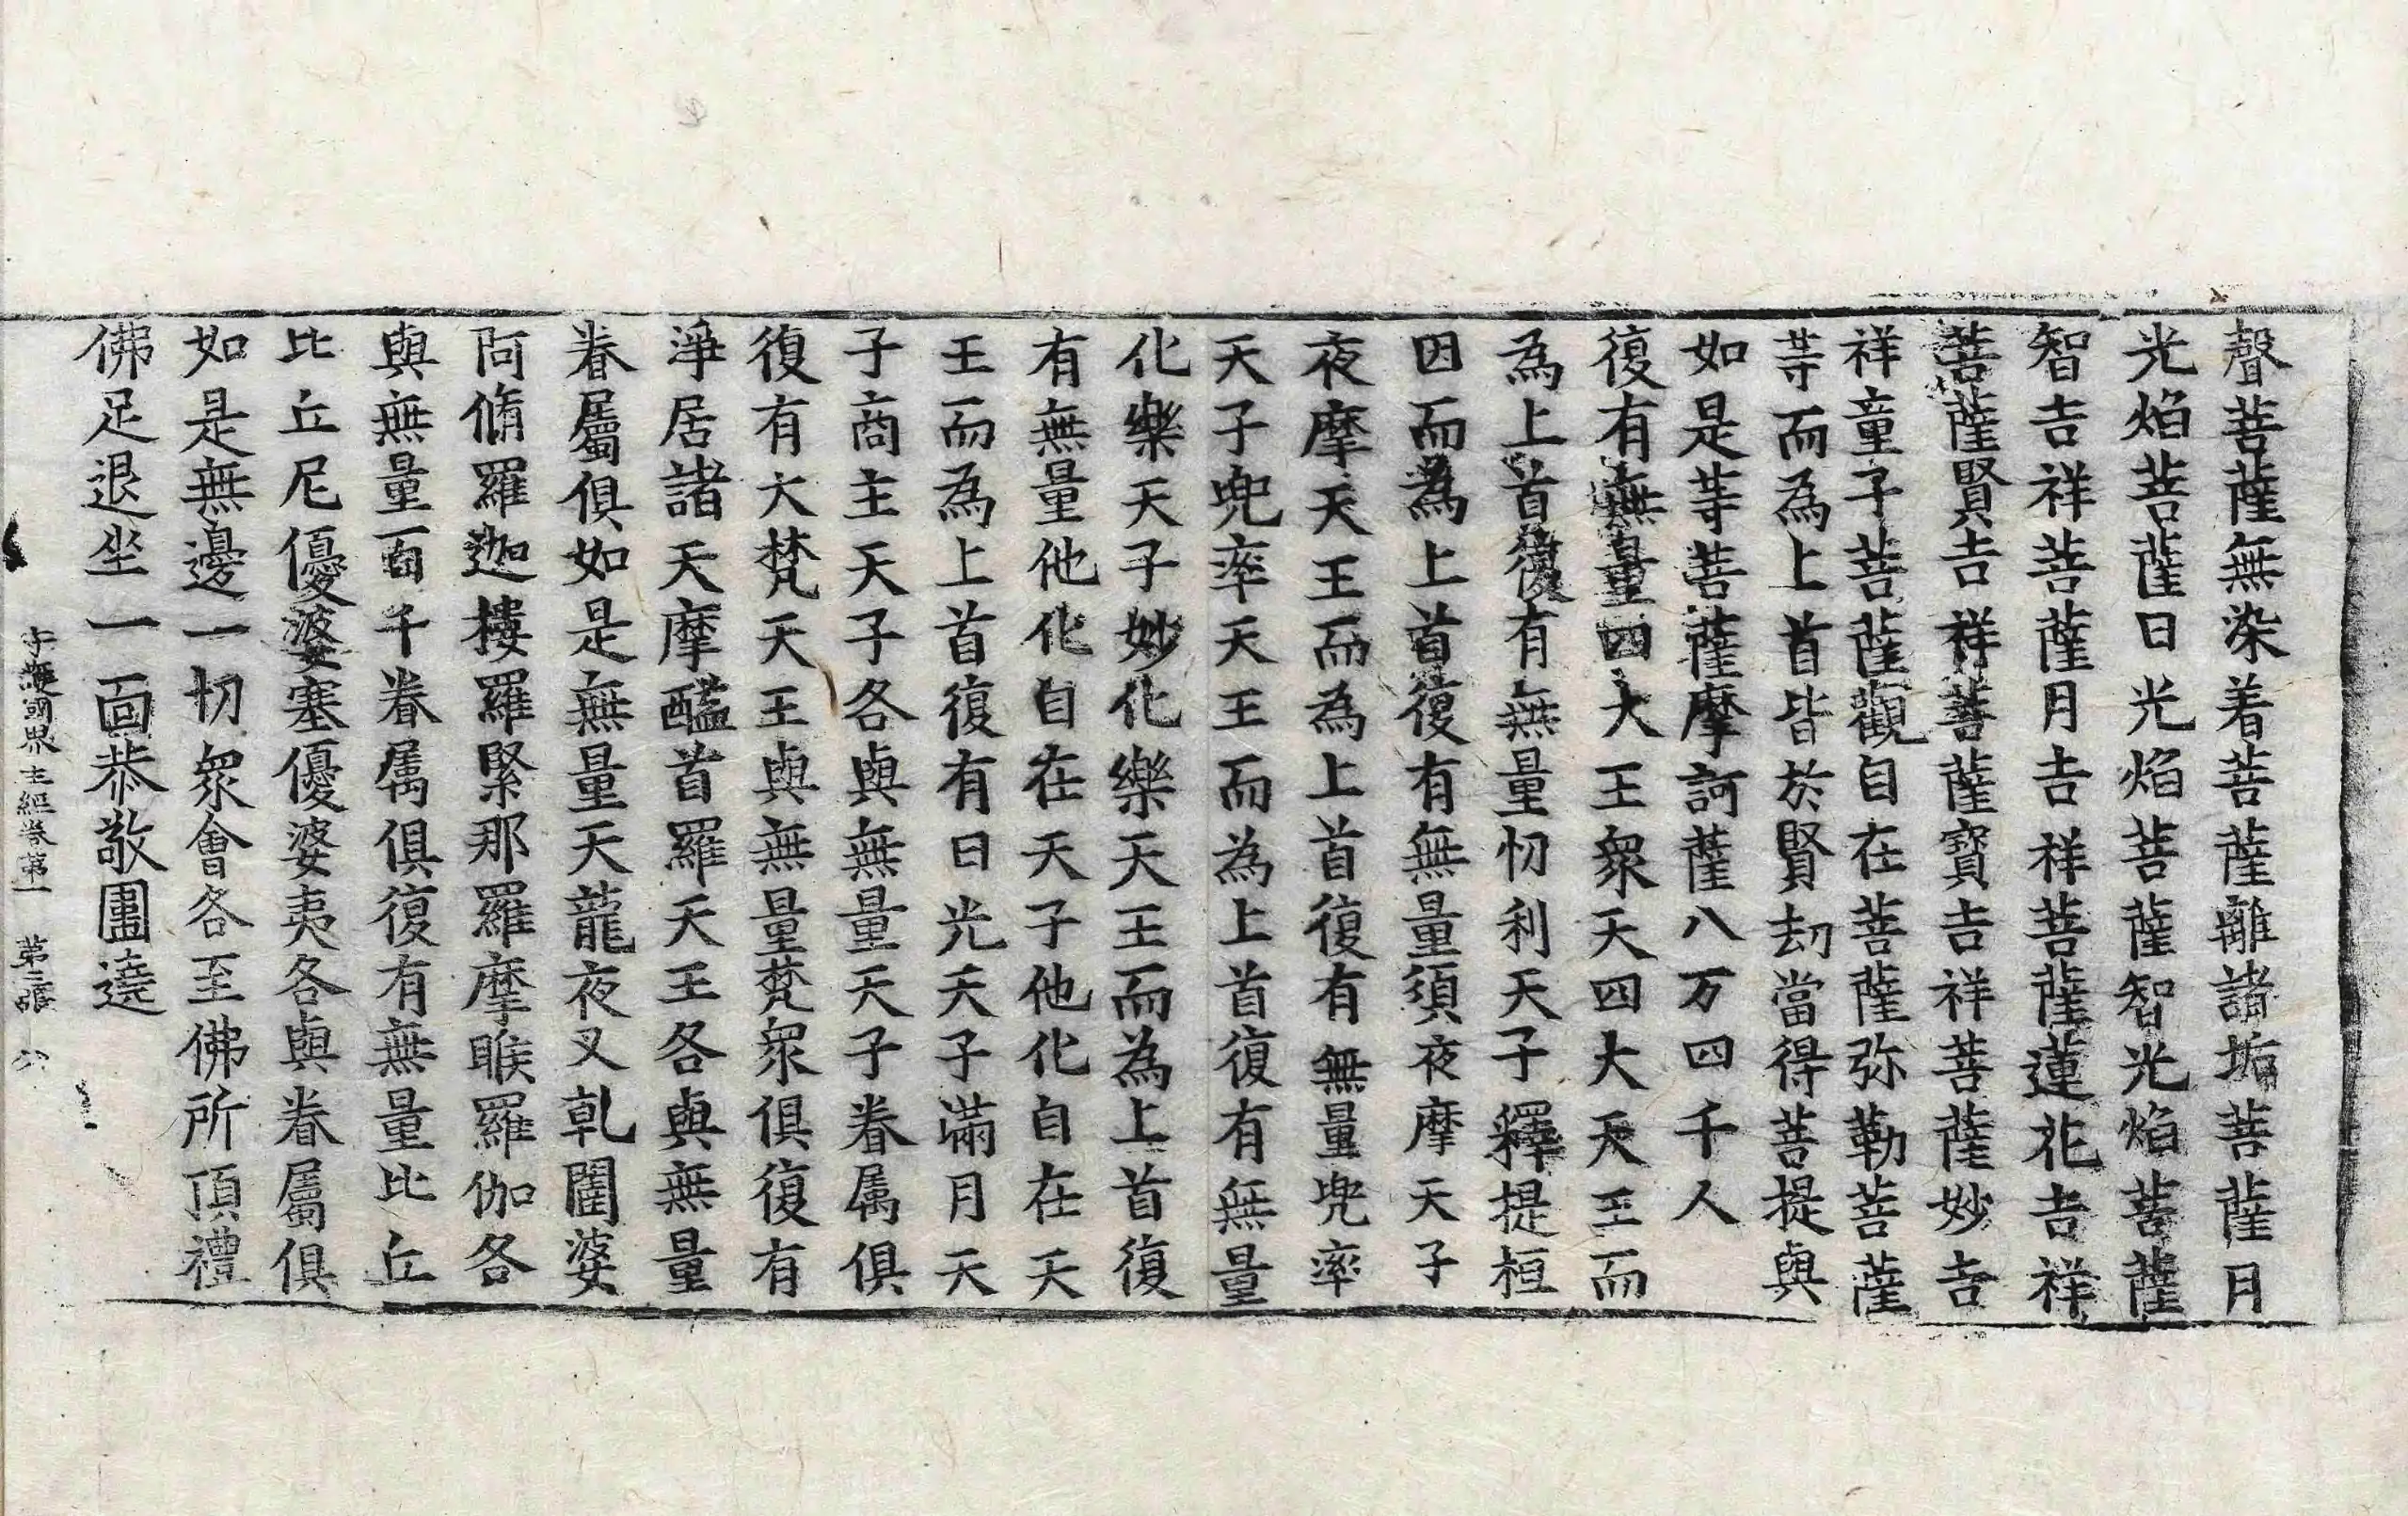 聲菩薩無染着菩薩離諸垢菩薩月
光焰菩薩日光焰菩薩智光焰菩薩
智吉祥菩薩月吉祥菩薩蓮花吉祥
菩薩賢吉祥菩薩寶吉祥菩薩妙吉
祥童子菩薩觀自在菩薩弥勒菩薩
等而為上首皆於賢劫當得菩提與
如是等菩薩摩訶薩八万四千人
復有無量四大王衆天四大天王而
為上首復有無量忉利天子釋提桓
因而為上首復有無量須夜摩天子
夜摩天王而為上首復有無量兜率
天子兜率天王而為上首復有無量
化樂天子妙化樂天王而為上首復
有無量他化自在天子他化自在天
王而為上首復有日光天子滿月天
子商主天子各與無量天子眷属俱
復有大梵天王與無量梵衆俱復有
淨居諸天摩醯首羅天王各與無量
眷屬俱如是無量天龍夜叉乹闥婆
阿脩羅迦樓羅緊那羅摩睺羅伽各
與無量百千眷属俱復有無量比丘
比丘尼優婆塞優婆夷各與眷屬俱
如是無邊一切衆會各至佛所頂禮
佛足退坐一面恭敬圍遶
守護國界主經卷第一　第三張